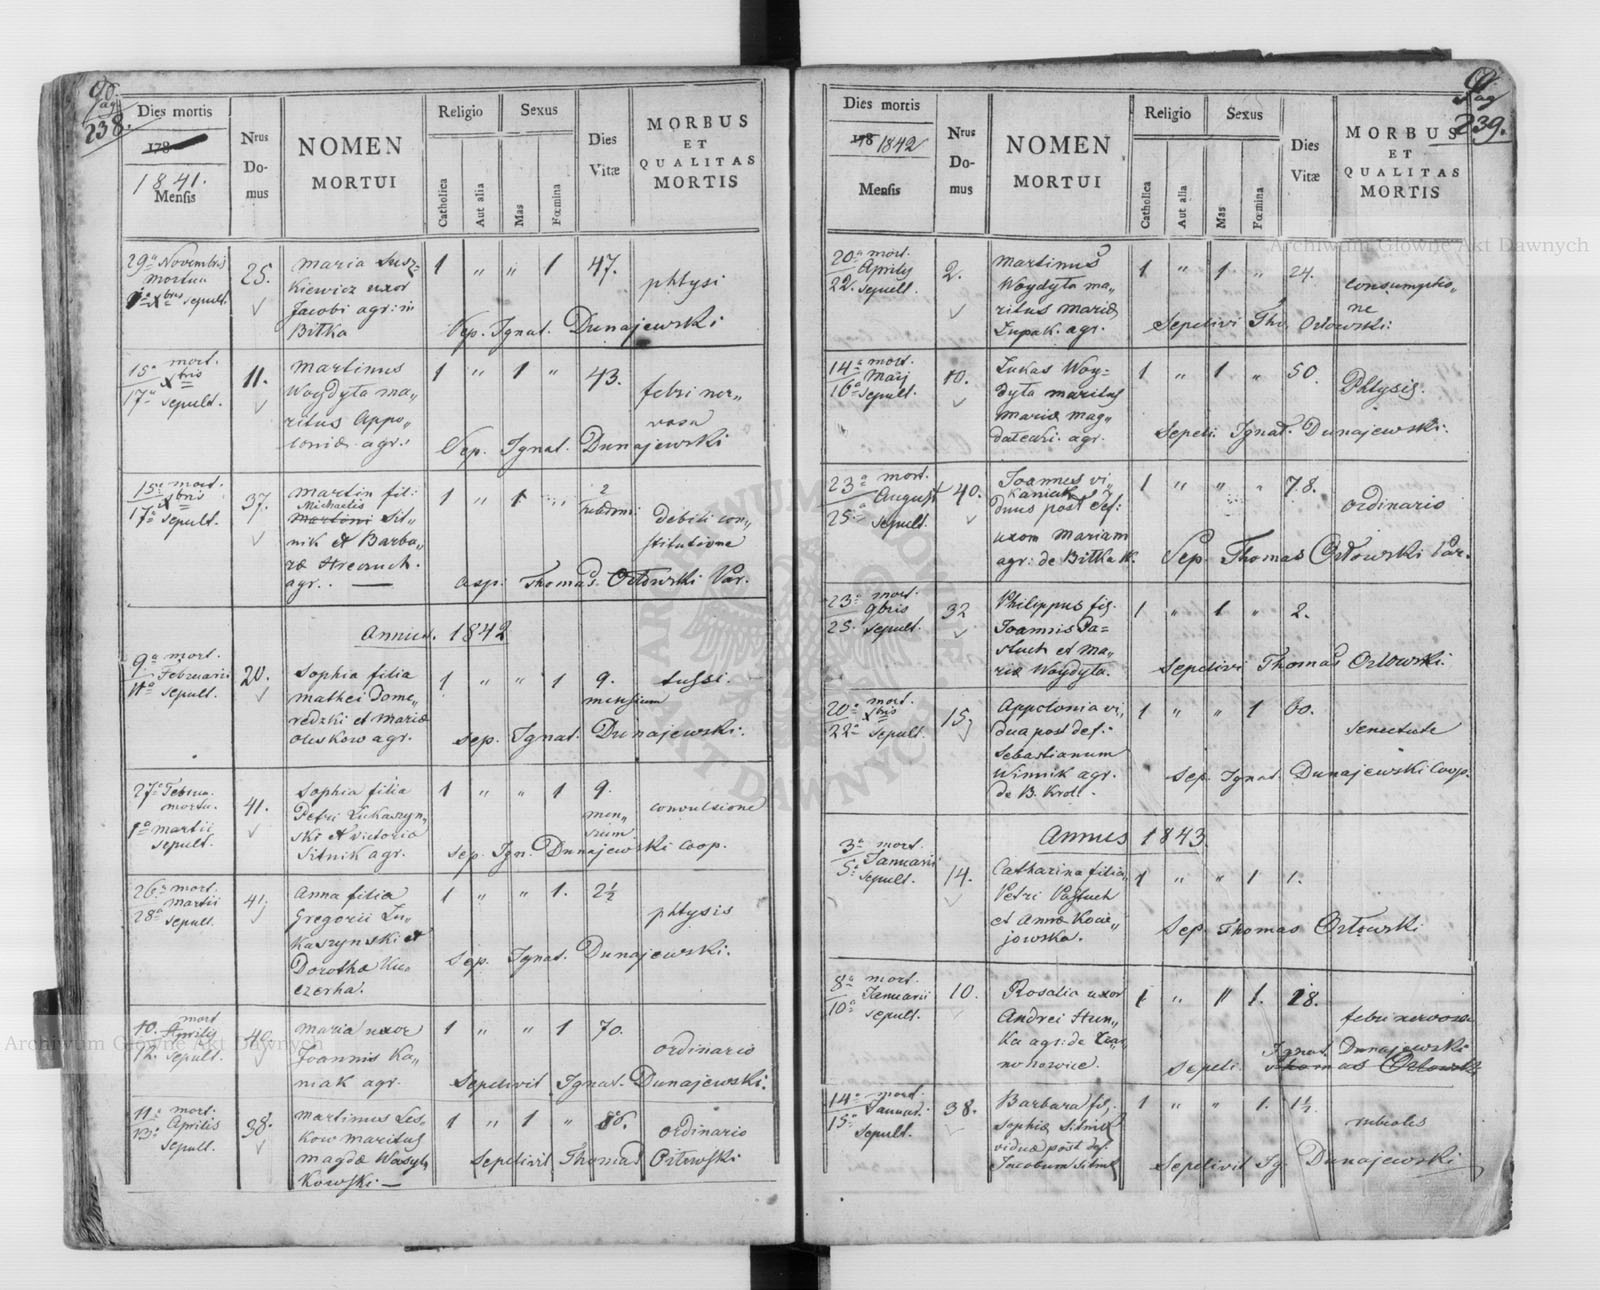 Pag
238.
Dies mortis
178
1841.
Mensis
Nrus Do-mus
NOMEN MORTUI
Religio
Catholica
Aut alia
Sexus
Mas
Fœmina
Dies Vitæ
MORBUS ET QUALITAS MORTIS
29a Novembris mortua
1a Xbris sepult.
25.
Maria Susz-
kiewicz uxor
Jacobi agr: in
Bitka
1 " " 1
47.
phtysi
Sep. Ignat. Dunajewski
15a mort. Xbris
17a sepult.
11.
Martinus
Woydyła ma"
ritus Appo"
loniæ agr.
1 " 1 "
43.
febri ner"
vosa
Sep. Ignat. Dunajewski
15a mort. Xbris
17a sepult.
37.
Martin fil:
Michaelis
Martini Sit-
nik et Barba"
ræ
agr.
1 " 1 "
2
debili con"
stitutione
asp. Thomas Orłowski Var.
Annus. 1842
9a mort. Februarii
11a sepult.
20.
Sophia filia
Mathei Dome"
redzki et Mariæ
Oleskow agr.
1 " " 1
9.
mensium
tussi.
Sep. Ignat. Dunajewski.
27a Februa. mortu.
1a Martii sepult.
41.
Sophia filia
Petri Łukaszyn"
ski et Victoria
Sitnik agr.
1 " " 1
9.
men"
sium
convulsione
Sep. Ign. Dunajewski Coop.
26a mort. Martii
28a sepult.
41
Anna filia
Gregorii Łu"
kaszynski et
Dorothæ Ku"
czerha.
1 " " 1.
2½
phtysis
Sep. Ignat. Dunajewski.
10. mort Aprilis
12. sepult.
40
Maria uxor
Joannis Ka"
niak agr.
1 " " 1
70.
ordinario
Sepelivit Ignat. Dunajewski.
11a mort. Aprilis
13a sepult.
38.
Martinus Les-
kow maritus
Magdæ Wasyl
kowski
1 " 1 "
ordinario
Sepelivit Thomas Orłowski
Pag
239.
Dies mortis
178 1842
Mensis
Nrus Do-mus
NOMEN MORTUI
Religio
Catholica
Aut alia
Sexus
Mas
Fœmina
Dies Vitæ
MORBUS ET QUALITAS MORTIS
20a mort. Aprilis
22. sepult.
2.
Martinus
Woydyła ma"
ritus Mariæ
Łupak. agr.
1 " 1 "
24.
consumptio"
ne
Sepelivi Tho. Orłowski.
14a mort. Maij
16a sepult.
10.
Lukas Woy-
dyła maritus
Mariæ Mag"
agr.
1 " 1 "
50.
Phtysis.
Sepeli. Ignat. Dunajewski.
23a mort. August
25a sepult.
40.
Joannes vi"
Kaniuk
duus post def:
uxom Mariam
agr: de Bitka W.
1 " " "
78.
ordinario
Sep. Thomas Orłowski Var.
23a mort. 9bris
25. sepult.
32
Philippus fil.
Joannis Pa-
stuch et Ma-
riæ Woydyła.
1 " 1 "
2.
Sepelivi Thomas Orłowski.
20a mort. Xbris
22a sepult.
15
Appolonia vi"
dua post def.
Sebastianum
Winnik agr.
de B. Kroll.
1 " " 1
60.
senectute
Sep. Ignat. Dunajewski Coop.
Annus 1843
3a mort. Januarii
5a sepult.
14.
Catharina filia
Petri Pastuch
et Annæ Kocie"
jowska.
1 " " 1
1.
Sep. Thomas Orłowski
8a mort. Januarii
10a sepult.
10.
Rosalia uxor
Andrei Hun"
ka agr: de Czar
nohorice.
1 " " 1.
28.
febri nervosa
Ignat. Dunajewski
Sepeli. Thomas Orłowski
14a mort. Januar.
15a sepult.
38.
Barbara fil.
Sophiæ Sitnik
viduæ post def.
Jacobum Sitnik
1 " " 1.
1½.
rubeoles
Sepelivit Ig. Dunajewski
Archiwum Główne Akt Dawnych
Archiwum Główne Akt Dawnych
ARCHIWUM GŁÓWNE AKT DAWNYCH